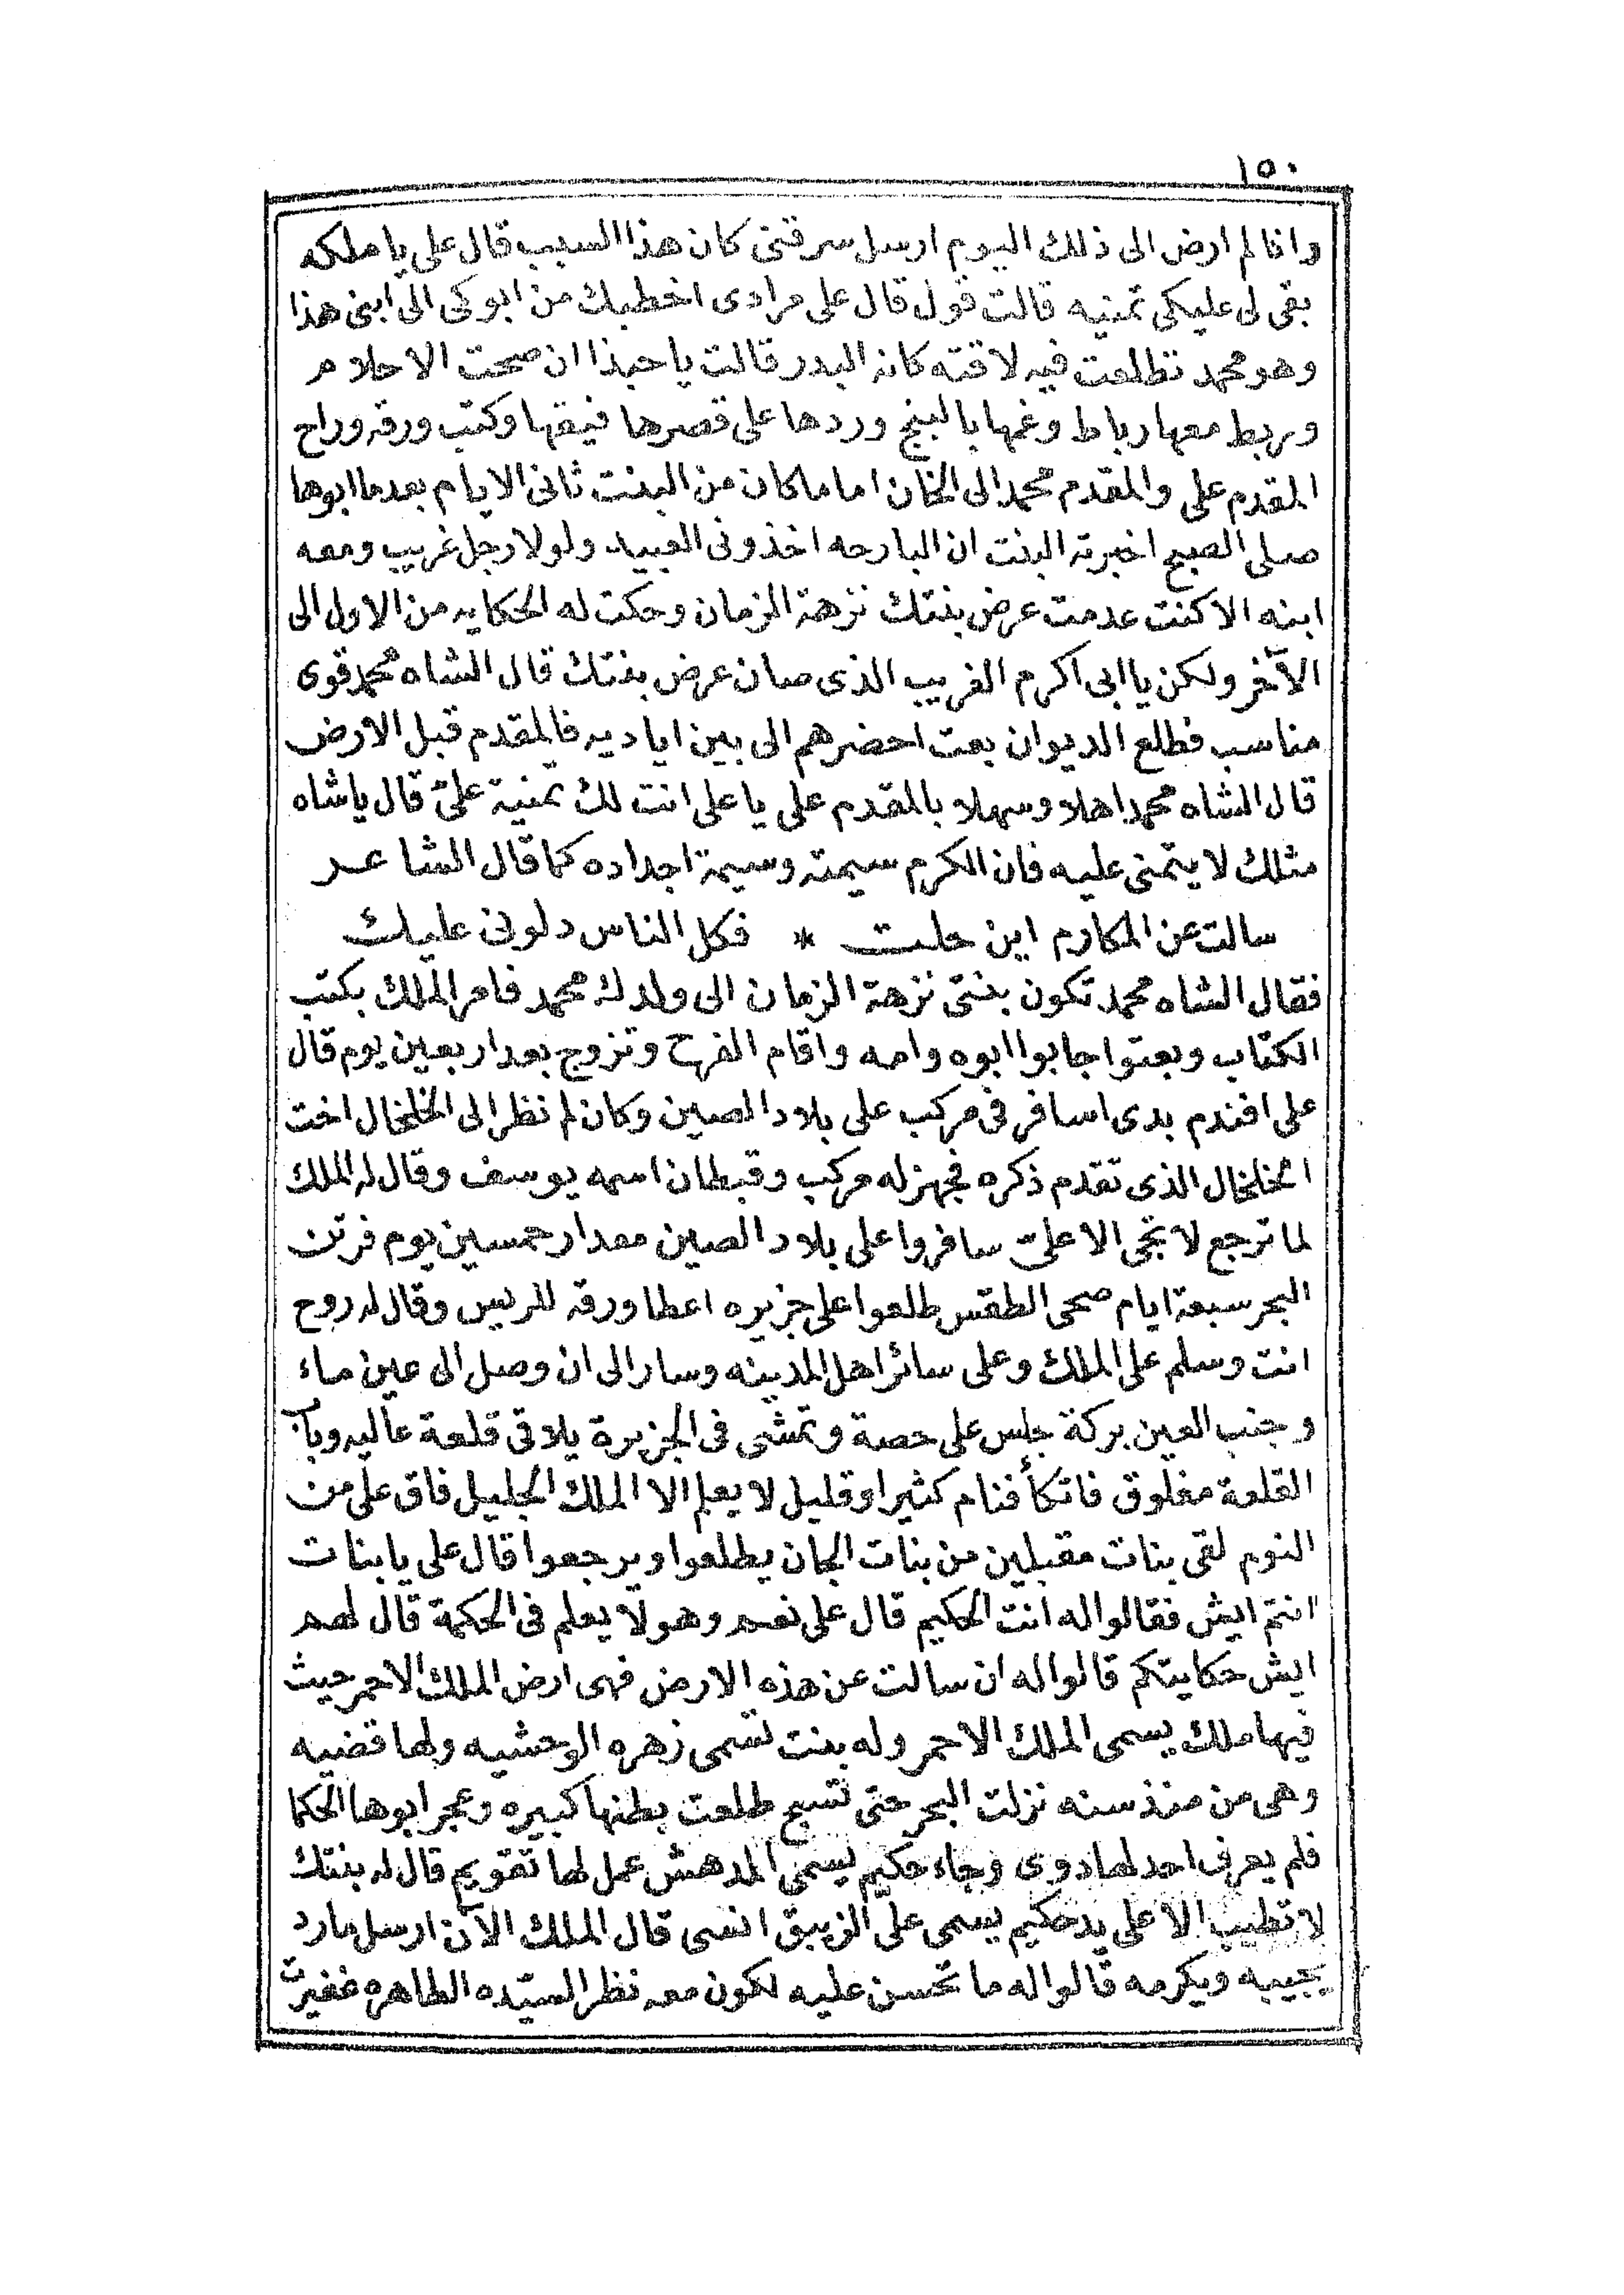 ١٥٠
وانا لم ارض الى ذلك اليوم ارسل سرقنى كان هذا السبب قال على يا ملكه
بقى لى عليكى تمنيه قالت قول قال على مرادى اخطبك من ابوكى الى ابنى هذا
وهو محمد تطلعت فيه لاقته كانه البدر قالت يا حبذا ان صحت الاحلام
وربط معها رباط وغمها بالبنج وردها على قصرها فيقها وكتب ورقه وراح
المقدم على والمقدم محمد الى الخان اما ما كان من البنت ثانى الايام بعدما ابوها
صلى الصبح اخبرته البنت ان البارحه اخذونى العبيد ولولا رجل غريب ومعه
ابنه الا كنت عدمت عرض بنتك نزهة الزمان وحكت له الحكايه من الاول الى
الآخر ولكن يا ابى اكرم الغريب الذى صان عرض بنتك قال الشاه محمد قوى
مناسب فطلع الديوان بعت احضرهم الى بين اياديه فالمقدم قبل الارض
قال الشاه محمد اهلا وسهلا بالمقدم على يا على انت لك تمنية علىّ قال يا شاه
مثلك لا يتمنى عليه فان الكرم سيمته وسيمة اجداده كما قال الشاعر
سالت عن المكارم اين حلت * فكل الناس دلونى عليك
فقال الشاه محمد تكون بنتى نزهة الزمان الى ولدك محمد فامر الملك بكتب
الكتاب وبعتوا جابوا ابوه وامه واقام الفرح وتزوج بعد اربعين يوم قال
على افندم بدى اسافر فى مركب على بلاد الصين وكان لم نظر الى الخلخال اخت
الخلخال الذى تقدم ذكره فجهز له مركب وقبطان اسمه يوسف وقال له الملك
لما ترجع لا تجى الا علىّ سافروا على بلاد الصين مقدار خمسين يوم فرتن
البحر سبعة ايام صحى الطقس طلعوا على جزيره اعطا ورقه للريس وقال له روح
انت وسلم على الملك وعلى سائر اهل المدينه وسار الى ان وصل الى عين ماء
وجنب العين بركة جلس على حصة وتمشى فى الجزيرة يلاقى قلعة عاليه وباب
القلعة مغلوق فاتكأ فنام كثير او قليل لا يعلم الا الملك الجليل فاق على من
النوم لقى بنات مقبلين من بنات الجان يطلعوا ويرجعوا قال على يا بنات
انتم ايش فقالوا له انت الحكيم قال على نعم وهو لا يعلم فى الحكمة قال لهم
ايش حكايتكم قالوا له ان سالت عن هذه الارض فهى ارض الملك الاحمر حيث
فيها ملك يسمى الملك الاحمر وله بنت تسمى زهره الوحشيه ولها قضيه
وهى من منذ سنه نزلت البحر حتى تسبح طلعت بطنها كبيره وعجر ابوها الحكما
فلم يعرف احد لها دوى وجاء حكيم يسمى المدهش عمل لها تقويم قال له بنتك
لا تطيب الا على يد حكيم يسمى على الزيبق انسى قال الملك الآن ارسل مارد
يجيبه ويكرمه قالوا له ما تحسن عليه لكون معه نظر السيّده الطاهره غفيرت